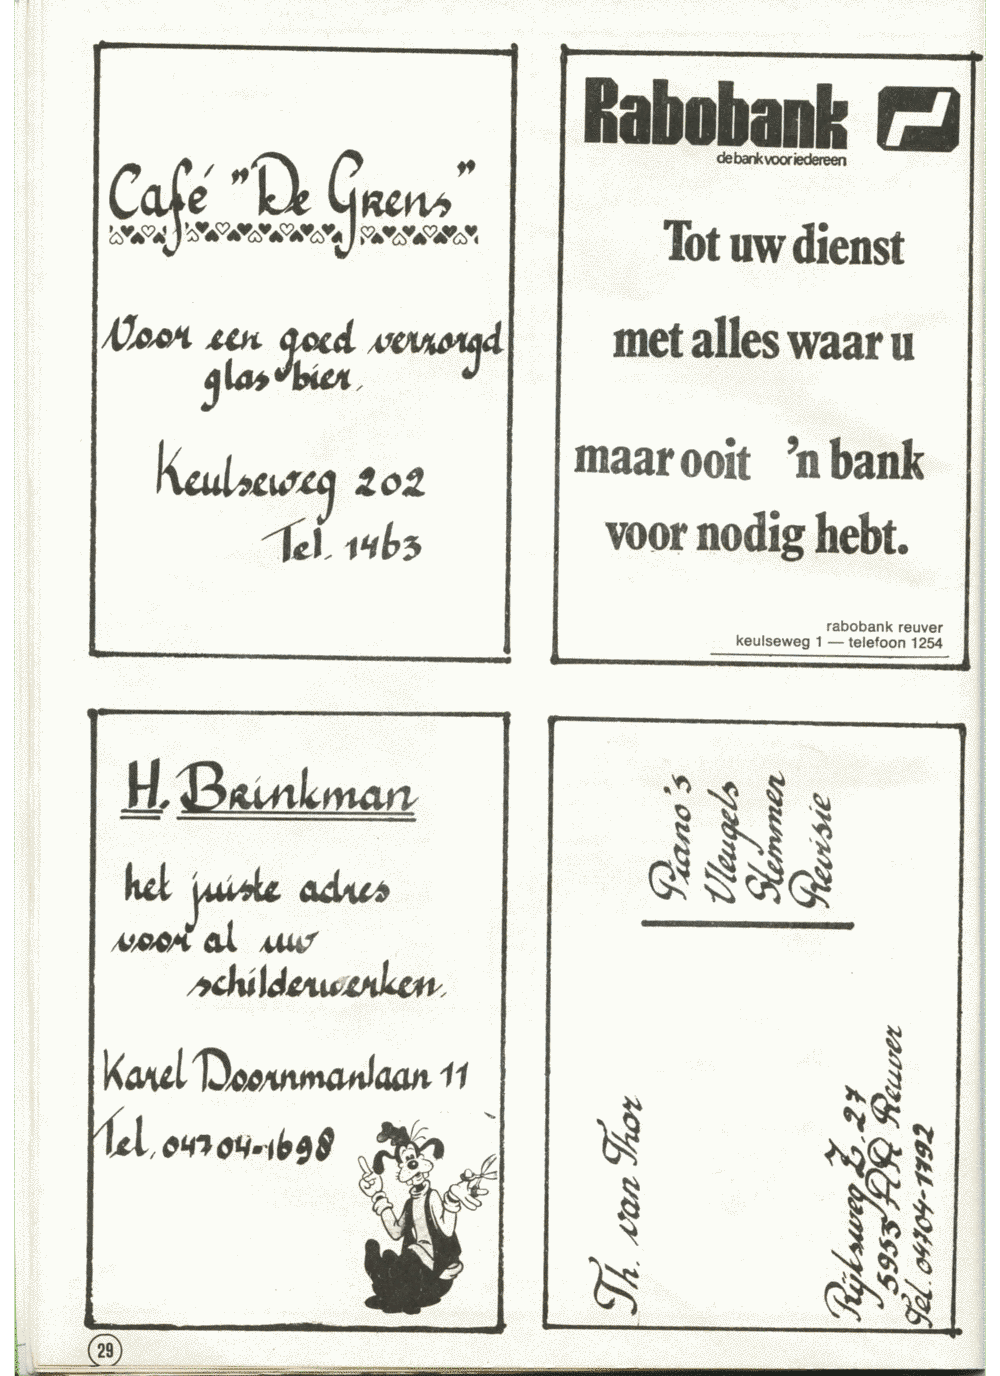 Café "De Grens"
Voor een goed verzorgd
glas bier.
Keulseweg 202
Tel. 1463
Rabobank
de bank voor iedereen
Tot uw dienst
met alles waar u
maar ooit 'n bank
voor nodig hebt.
rabobank reuver
keulseweg 1 — telefoon 1254
H. Brinkman
het juiste adres
voor al uw
schilderwerken.
Karel Doornmanlaan 11
Tel. 04704-1698
Piano's
Vleugels
Stemmen
Revisie
Th. van Thor
Rijksweg Z. 27
5953 AR Reuver
Tel. 04704-1792
29